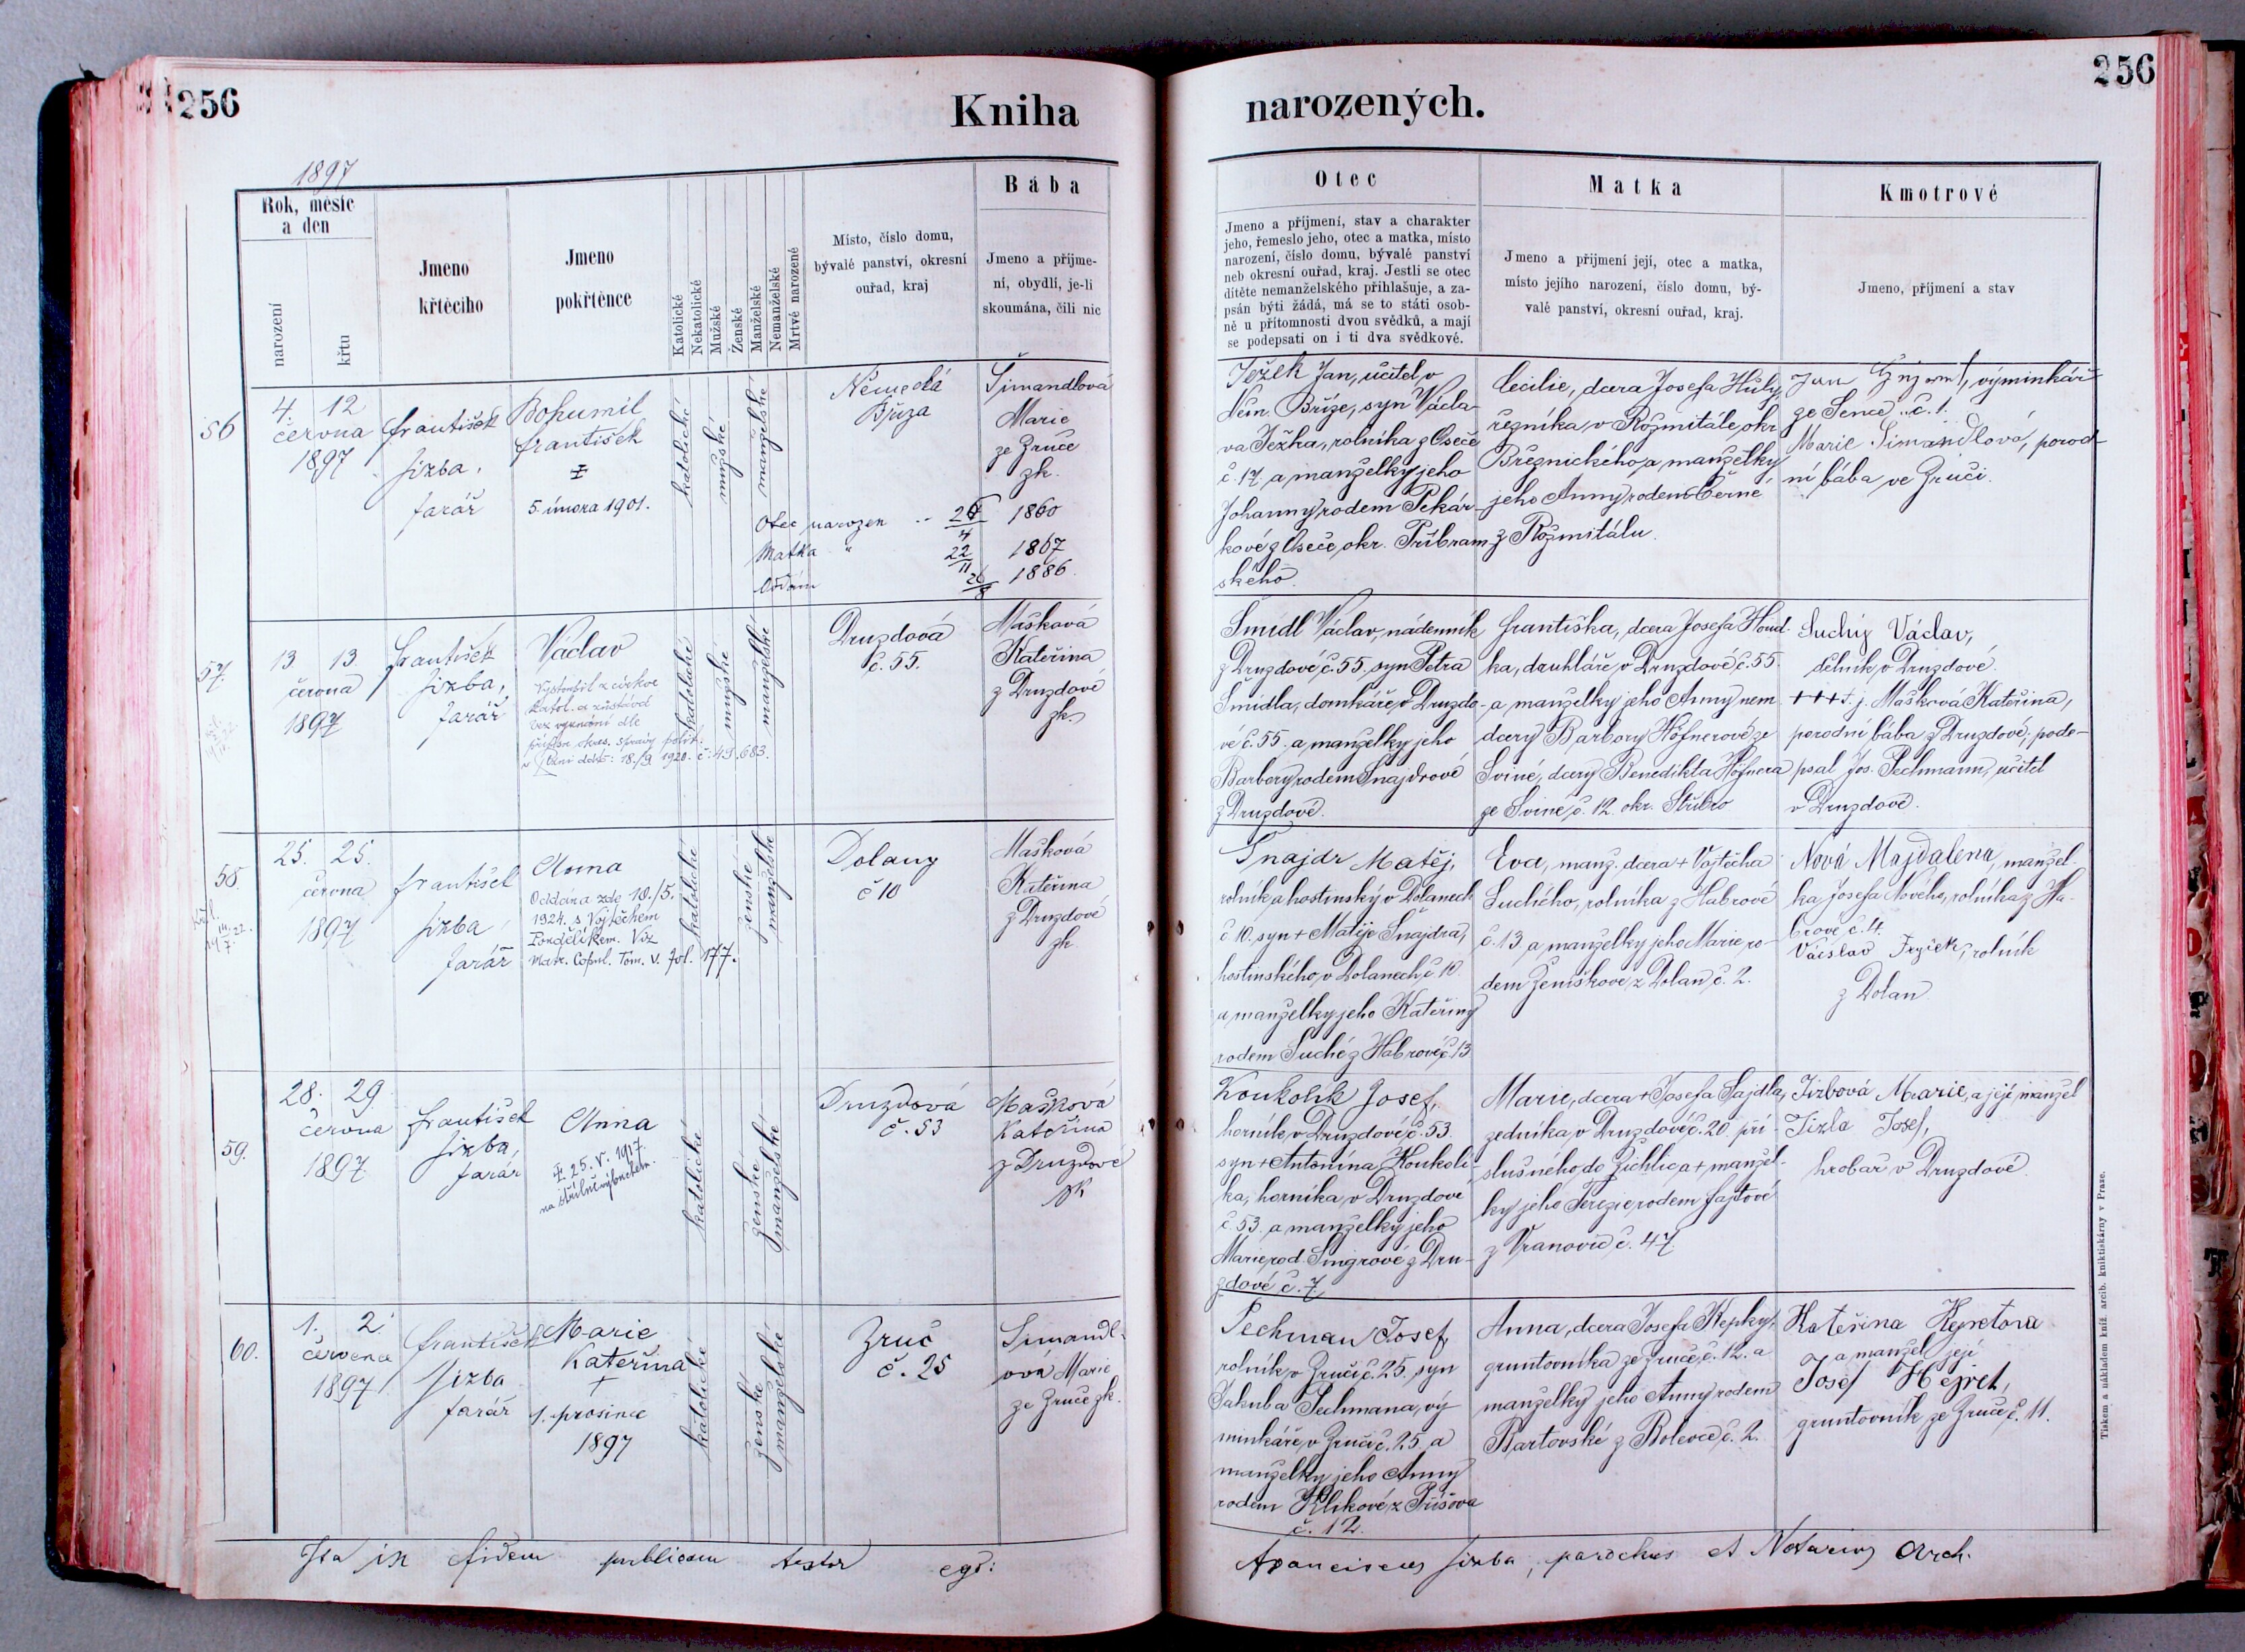 256
Kniha
narozených.
256
1897
Rok, měsíc
a den
narození
křtu
Jmeno
křtěcího
Jmeno
pokřtěnce
Katolické
Nekatolické
Mužské
Ženské
Manželské
Nemanželské
Mrtvě narozené
Místo, číslo domu,
bývalé panství, okresní
ouřad, kraj
Bába
Jmeno a příjme-
ní, obydlí, je-li
skoumána, čili nic
Otec
Jmeno a příjmení, stav a charakter
jeho, řemeslo jeho, otec a matka, místo
narození, číslo domu, bývalé panství
neb okresní ouřad, kraj. Jestli se otec
dítěte nemanželského přihlašuje, a za-
psán býti žádá, má se to státi osob-
ně u přítomnosti dvou svědků, a mají
se podepsati on i ti dva svědkové.
Matka
Jmeno a přijmení její, otec a matka,
místo jejího narození, číslo domu, bý-
valé panství, okresní ouřad, kraj.
Kmotrové
Jmeno, příjmení a stav
56
4. 12
června
1897
František
Jizba,
farář
Bohumil
František
5. února 1901.
katolické
mužské
manželské
Německá
Bříza
Šimandlová
Marie
ze Zruče
zk.
Otec narozen
4 1860
Matka "
22
11 1867
Oddáni
26
8 1886.
Ježek Jan, učitel v
Něm. Bříze, syn Václa-
va Ježka, rolníka z Oseče
č. 17 a manželky jeho
Johanny rodem Pekár-
kové z Oseče, okr. Příbram-
ského.
Cecilie, dcera Josefa Hůly,
řezníka v Rožmitále, okr.
Březnického, a manželky
jeho Anny rodem Černé
z Rožmitálu.
Jan
výminkář
ze Sence č. 1.
Marie Šimandlová, porod-
ní bába ve Zruči.
57.
13. 13.
června
1897
František
Jizba,
farář
Václav
Vystoupil z církve
katol. a zůstává
bez vyznání dle
přípisu okres. správy polit.
18./9. 1920. č. 49.683.
katolické
mužské
manželské
Druzdová
č. 55.
Mašková
Kateřina
z Druzdové
zk.
Šmídl Václav, nádenník
z Druzdové č. 55. syn Petra
Šmídla, domkáře v Druzdo-
vé č. 55. a manželky jeho
Barbory rodem Šnajdrové
z Druzdové.
Františka, dcera Josefa Houd-
ka, truhláře v Druzdové č. 55.
a manželky jeho Anny nem.
dcery Barbory Höfnerové ze
Sviné, dcery Benedikta Höfnera
ze Sviné č. 12. okr. Stříbro
Suchý Václav,
dělník v Druzdové.
+++ t. j. Mašková Kateřina,
porodní bába z Druzdové, pode-
psal Jos. Pechmann, učitel
v Druzdové.
58.
25. 25.
června
1897
František
Jizba,
farář
Anna
Oddána zde 10./5.
1924. s Vojtěchem
Pondělíkem. Viz
Matr. Copul. Tom. V. fol. 177.
katolické
ženské
manželské
Dolany
č 10
Mašková
Kateřina
z Druzdové
zk
Šnajdr Matěj,
rolník a hostinský v Dolanech
č. 10. syn + Matěje Šnajdra,
hostinského v Dolanech č. 10.
a manželky jeho Kateřiny
rodem Suché z Habrové č. 13
Eva, manž. dcera + Vojtěcha
Suchého, rolníka z Habrové
č. 13. a manželky jeho Marie ro-
dem Ženíškové z Dolan č. 2.
Nová Majdalena, manžel-
ka Josefa Nového, rolníka z Ha-
brové č. 4.
Václav rolník
z Dolan
59.
28. 29.
června
1897
František
Jizba,
farář
Anna
25. V. 1917.
katolické
ženské
manželské
Druzdová
č. 53
Mašková
Kateřina
z Druzdové
zk
Koukolík Josef,
horník v Druzdové č. 53.
syn + Antonína Koukolí-
ka, horníka v Druzdové
č 53. a manželky jeho
Marie rod. Šingrové z Dru-
zdové č. 7.
Marie, dcera + Josefa Šajdla,
zedníka v Druzdové č. 20. pří-
slušného do Žichlic a + manžel-
ky jeho Terezie rodem Fajtové
z Vranovic č. 47
Jizbová Marie, a její manžel
Jizba Josef,
hrobař v Druzdové.
60.
1. 2.
července
1897
František
Jizba
farář
Marie
Kateřina
+
1. prosince
1897
katolické
ženské
manželské
Zruč
č. 25
Šimandl-
ová Marie
ze Zruče zk.
Pechman Josef,
rolník v Zruči č. 25. syn
Jakuba Pechmana, vý-
minkáře v Zruči č. 25. a
manželky jeho Anny
rodem Klikové z Příšova
č. 12.
Anna, dcera Josefa Kepky,
gruntovníka ze Zruče č. 12. a
manželky jeho Anny rodem
Bartovské z Bolevce č. 2.
Kateřina Hejretova
a manžel její
Josef Hejret,
gruntovník ze Zruče č. 11.
Ita in fidem publicam testor ego:
Franciscus Jizba, parochus et Notarius Arch.
Tiskem a nákladem kníž. arcib. knihtiskárny v Praze.